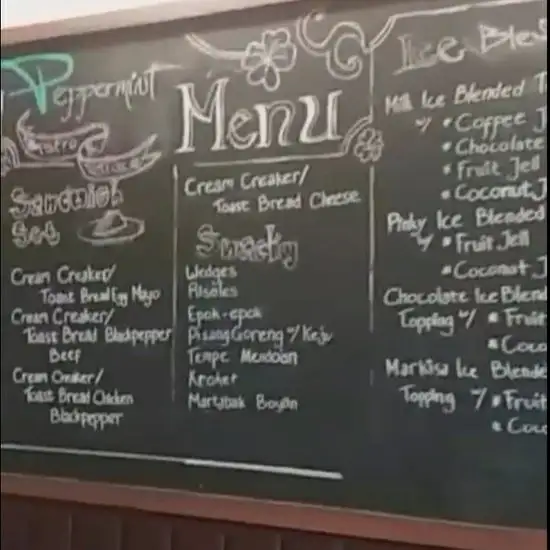 Peppermint
Bistro
Menu
Sandwich
Set
Cream Creaker/
Toast Bread Egg Mayo
Cream Creaker/
Toast Bread Blackpepper
Beef
Cream Creaker/
Toast Bread Chicken
Blackpepper
Cream Creaker/
Toast Bread Cheese
Snacky
Wedges
Risoles
Epok-epok
Pisang Goreng w/ Keju
Tempe Mendoan
Kroket
Martabak Boyan
Ice Ble
Milk Ice Blended T
w/ * Coffee J
* Chocolate
* Fruit Jell
* Coconut J
Pinky Ice Blended
w/ * Fruit Jell
* Coconut J
Chocolate Ice Blend
Topping w/ * Fruit
* Coco
Markisa Ice Blende
Topping w/ * Fruit
* Coco